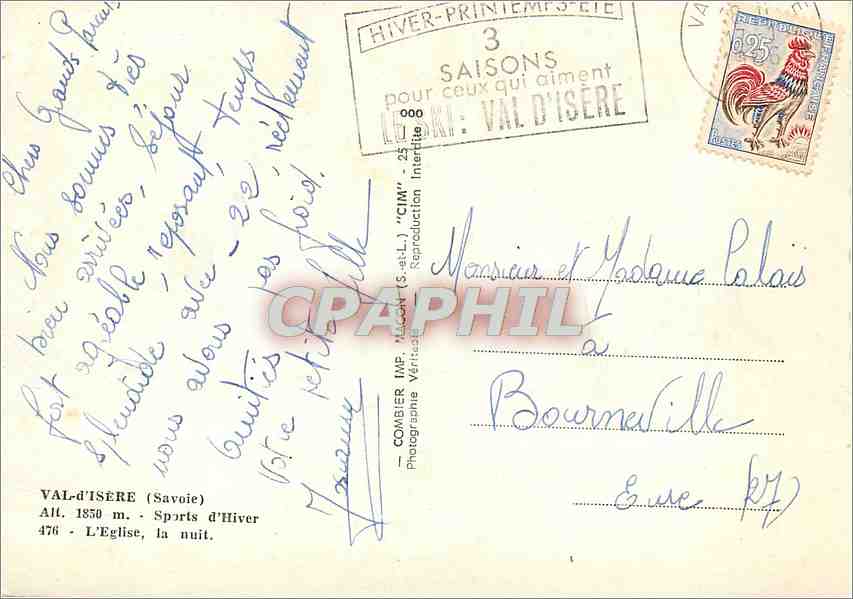 Chers Grands Parents
Nous sommes très
bien arrivées, Séjour
fort agréable reposant temps
splendide avec - 22 réellement
nous avons pas froid.
Amitiés
Votre petite fille
VAL-d'ISÈRE (Savoie)
Alt. 1850 m. - Sports d'Hiver
476 - L'Eglise, la nuit.
— COMBIER IMP. MACON (S.-et-L.) "CIM" - 25 000
Photographie Véritable — Reproduction Interdite
HIVER-PRINTEMPS-ETE
3
SAISONS
pour ceux qui aiment
LE SKI: VAL D'ISÈRE
VA
REPUBLIQUE FRANÇAISE
0,25
POSTES
Monsieur et Madame Calais
à
Bourneville
Eure (27)
CPAPHIL